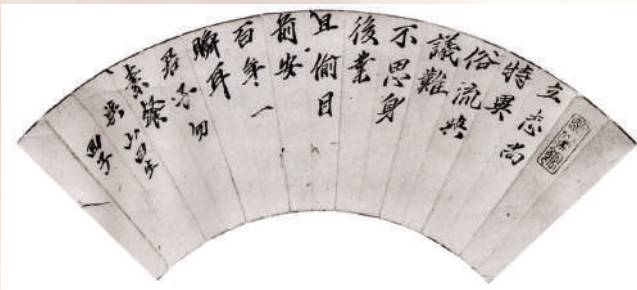 立志尚
特異
俗流與
議難
不思身
後業
且偷目
前安
百年一
瞬耳
君子勿
素餐
與山田生